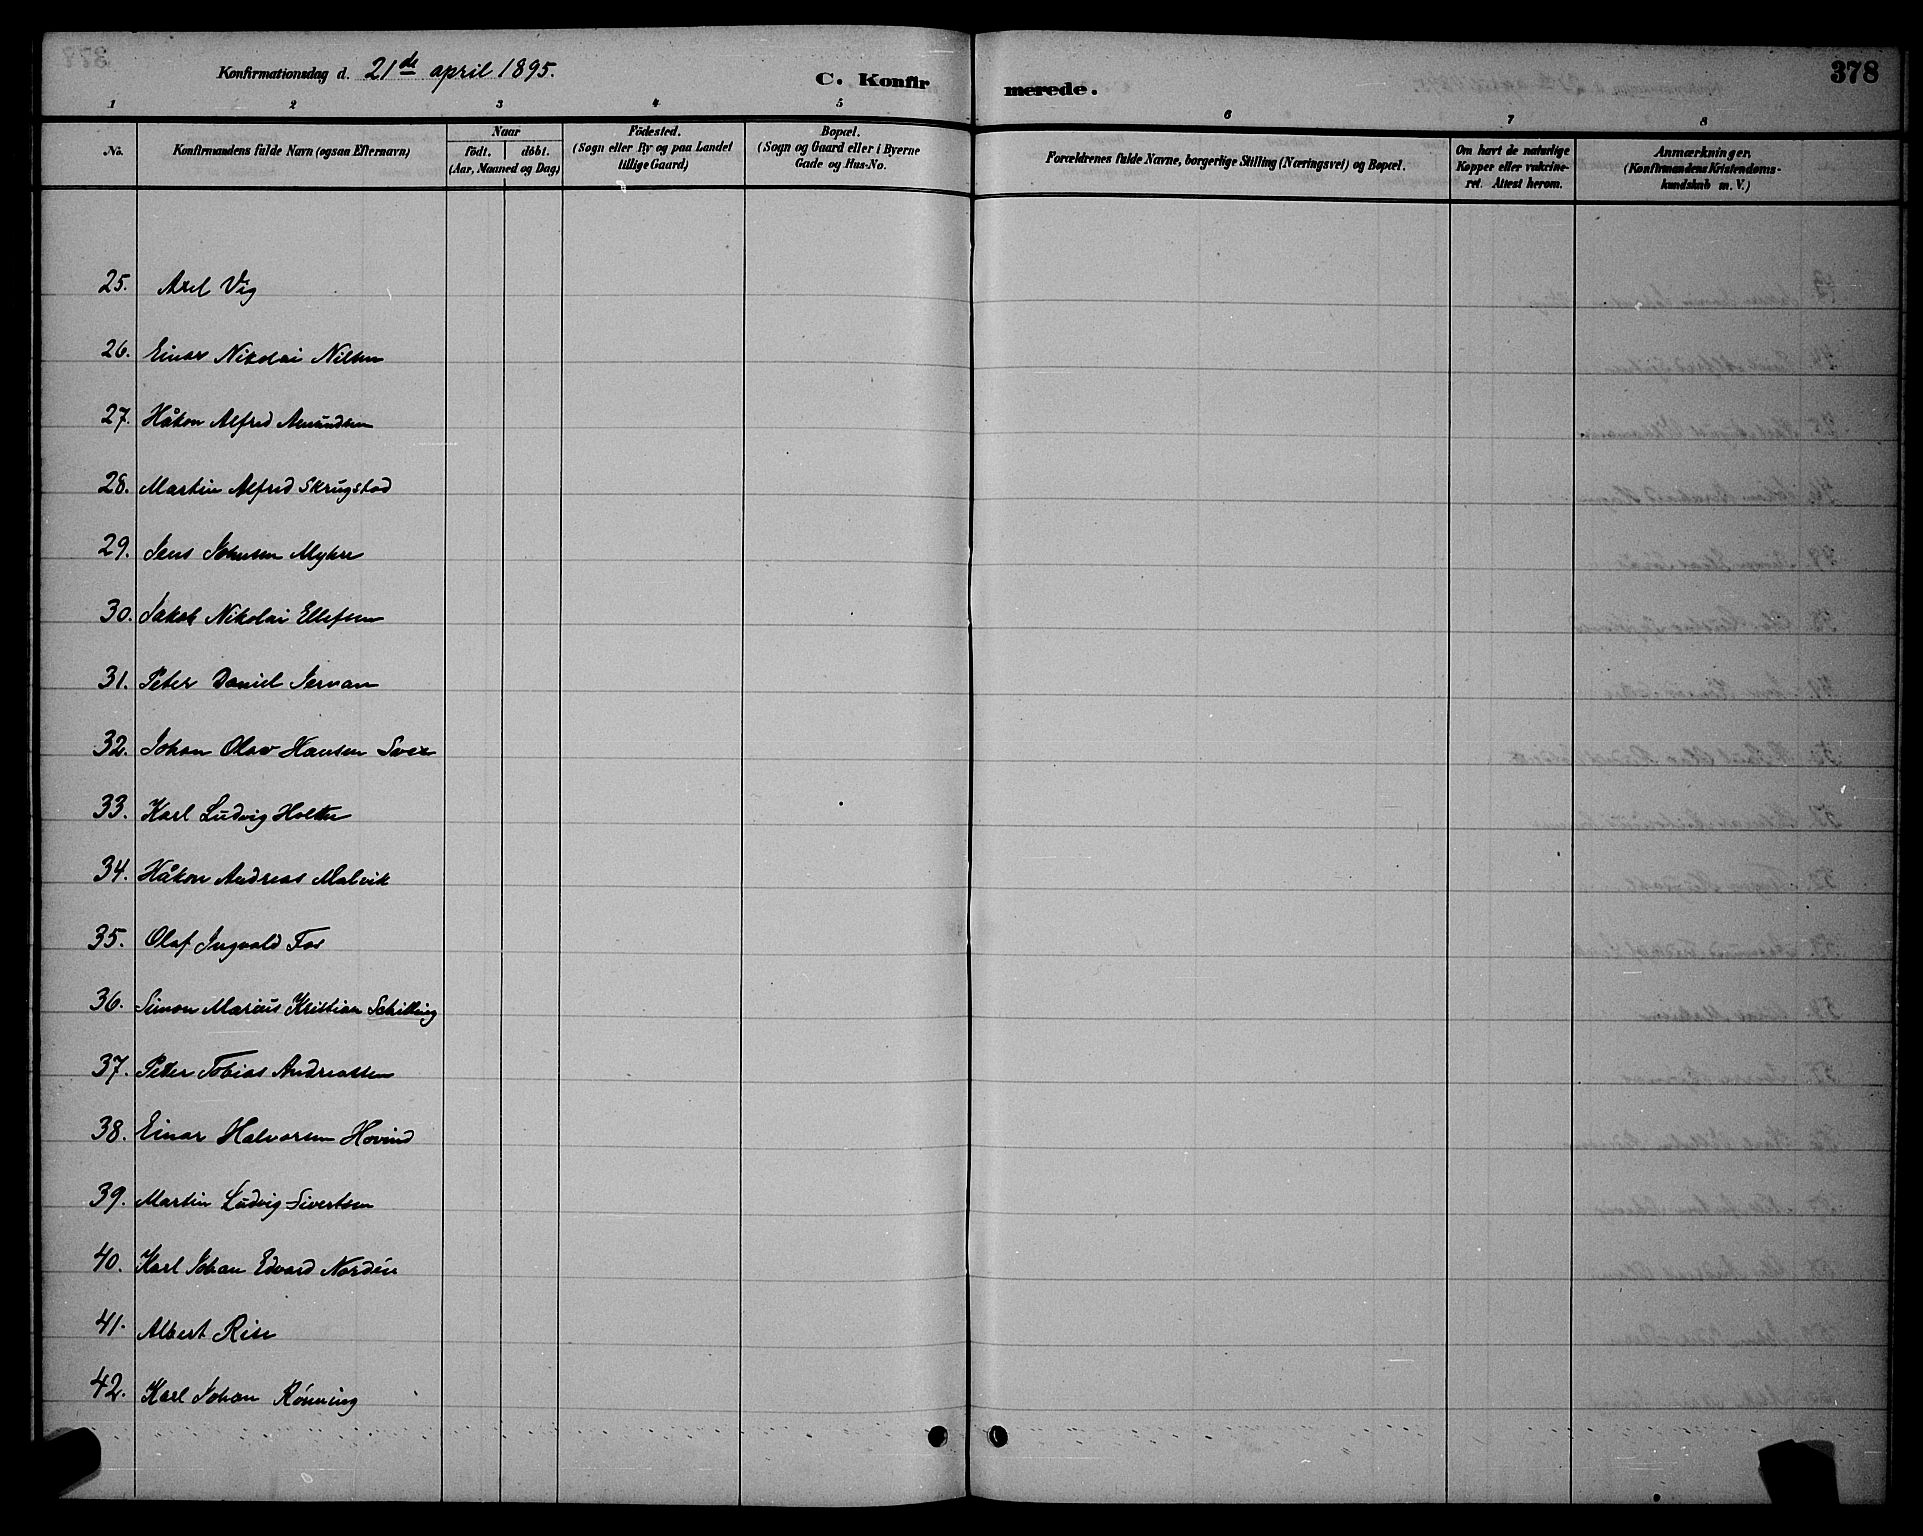 Konfirmationsdag d. 21de april 1895.
C. Konfirmerede.
378
1 2 3 4 5 6 7 8
No.
Konfirmandens fulde Navn (ogsaa Efternavn)
Naar
födt. döbt.
(Aar, Maaned og Dag)
Födested.
(Sogn eller By og paa Landet
tillige Gaard)
Bopæl.
(Sogn og Gaard eller i Byerne
Gade og Hus-No.
Forældrenes fulde Navne, borgerlige Stilling (Næringsvei) og Bopæl.
Om havt de naturlige
Kopper eller vakcine-
ret. Attest herom.
Anmærkninger.
(Konfirmandens Kristendoms-
kundskab m. V.)
25. Axel Vig
26. Einar Nikolai Nilsen
27. Håkon Alfred Amundsen
28. Martin Alfred Skrugstad
29. Jens Johnsen Myhre
30. Jakob Nikolai Ellefsen
31. Peter Daniel Jervan
32. Johan Olav Hansen
33. Karl Ludvig Holter
34. Håkon Andreas Malvik
35. Olaf Ingvald Fos
36. Simon Marius Kristian Schilling
37. Peter Tobias Andreassen
38. Einar Halvorsen Hovind
39. Martin Ludvig Sivertsen
40. Karl Johan Edvard Nordén
41. Albert Rise
42. Karl Johan Rönning